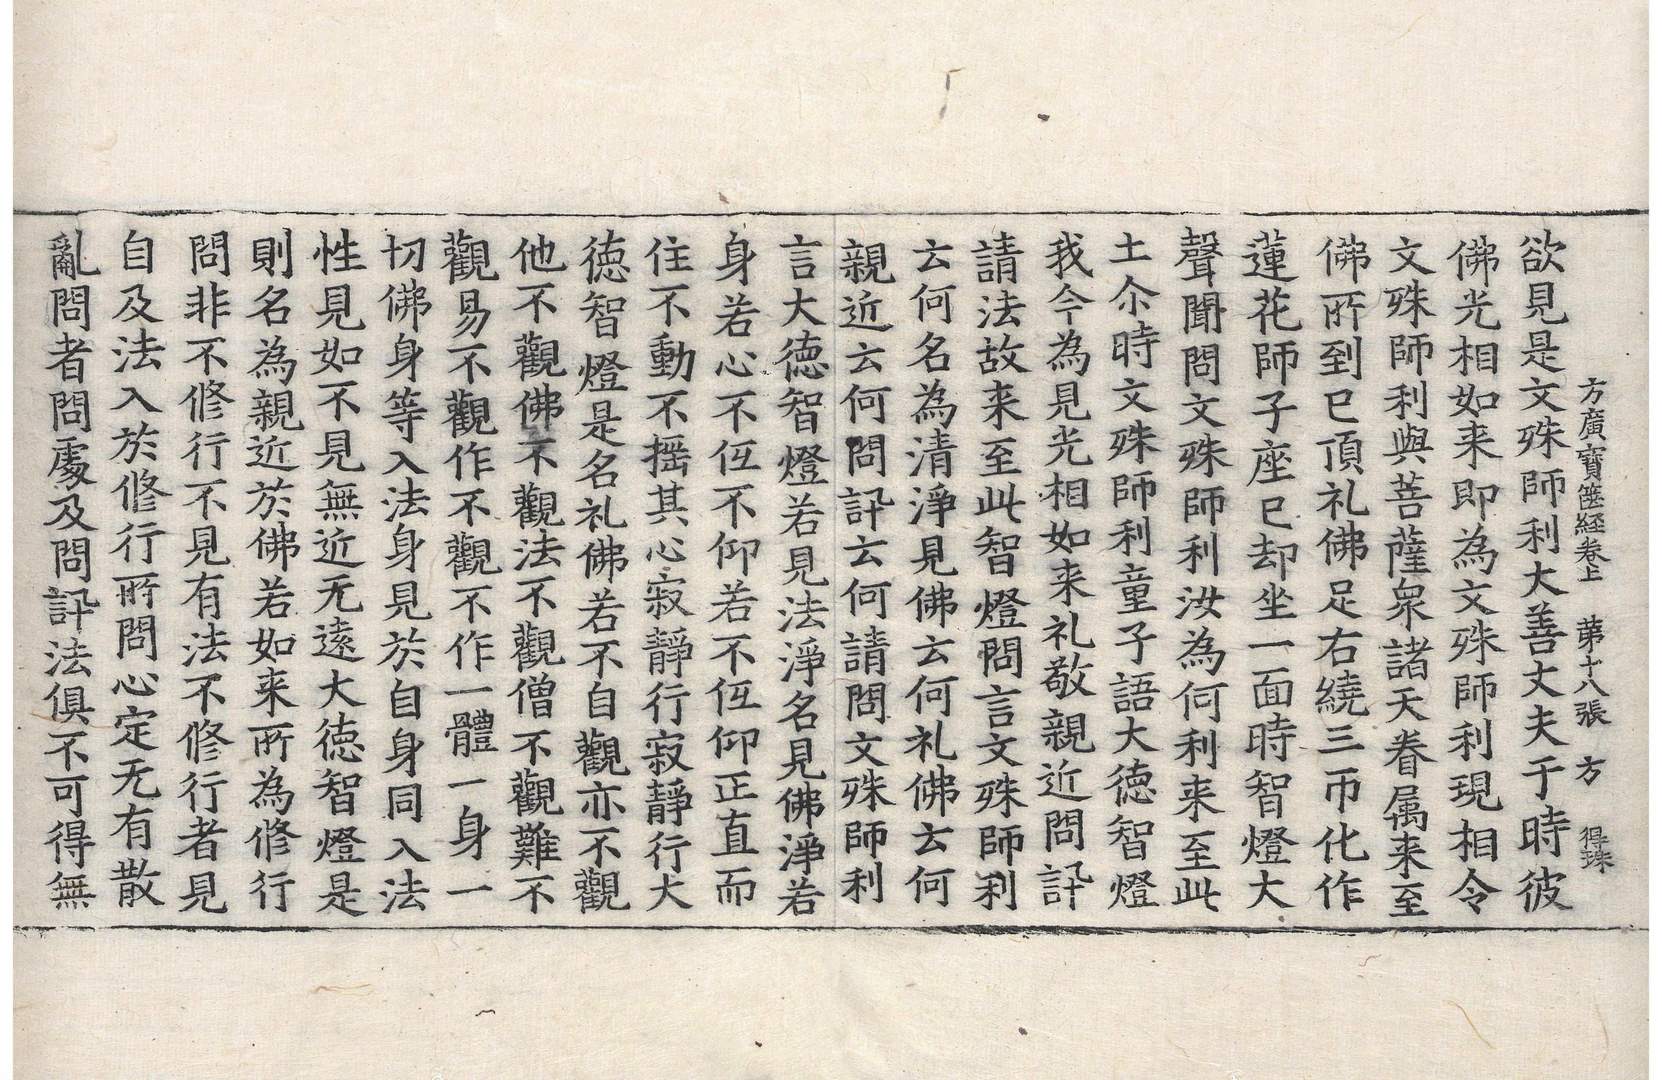 方廣寶篋経卷上 苐十八張 方 得珠
欲見是文殊師利大善丈夫于時彼
佛光相如来即為文殊師利現相令
文殊師利與菩薩衆諸天眷属来至
佛所到已頂礼佛足右繞三帀化作
蓮花師子座已却坐一面時智燈大
聲聞問文殊師利汝為何利来至此
土尒時文殊師利童子語大德智燈
我今為見光相如来礼敬親近問訊
請法故来至此智燈問言文殊師利
云何名為清淨見佛云何礼佛云何
親近云何問訊云何請問文殊師利
言大徳智燈若見法淨名見佛淨若
身若心不伍不仰若不伍仰正直而
住不動不揺其心寂靜行寂靜行大
徳智燈是名礼佛若不自觀亦不觀
他不觀佛不觀法不觀僧不觀難不
觀易不觀作不觀不作一體一身一
切佛身等入法身見於自身同入法
性見如不見無近无遠大徳智燈是
則名為親近於佛若如来所為修行
問非不修行不見有法不修行者見
自及法入於修行所問心定无有散
亂問者問處及問訊法俱不可得無